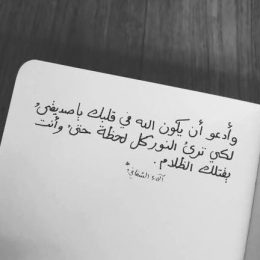 وأدعو أن يكون الله في قلبك ياصديقيْ
لكي ترىْ النور كل لحظة حتىْ وأنت
بفتلك الظلام .